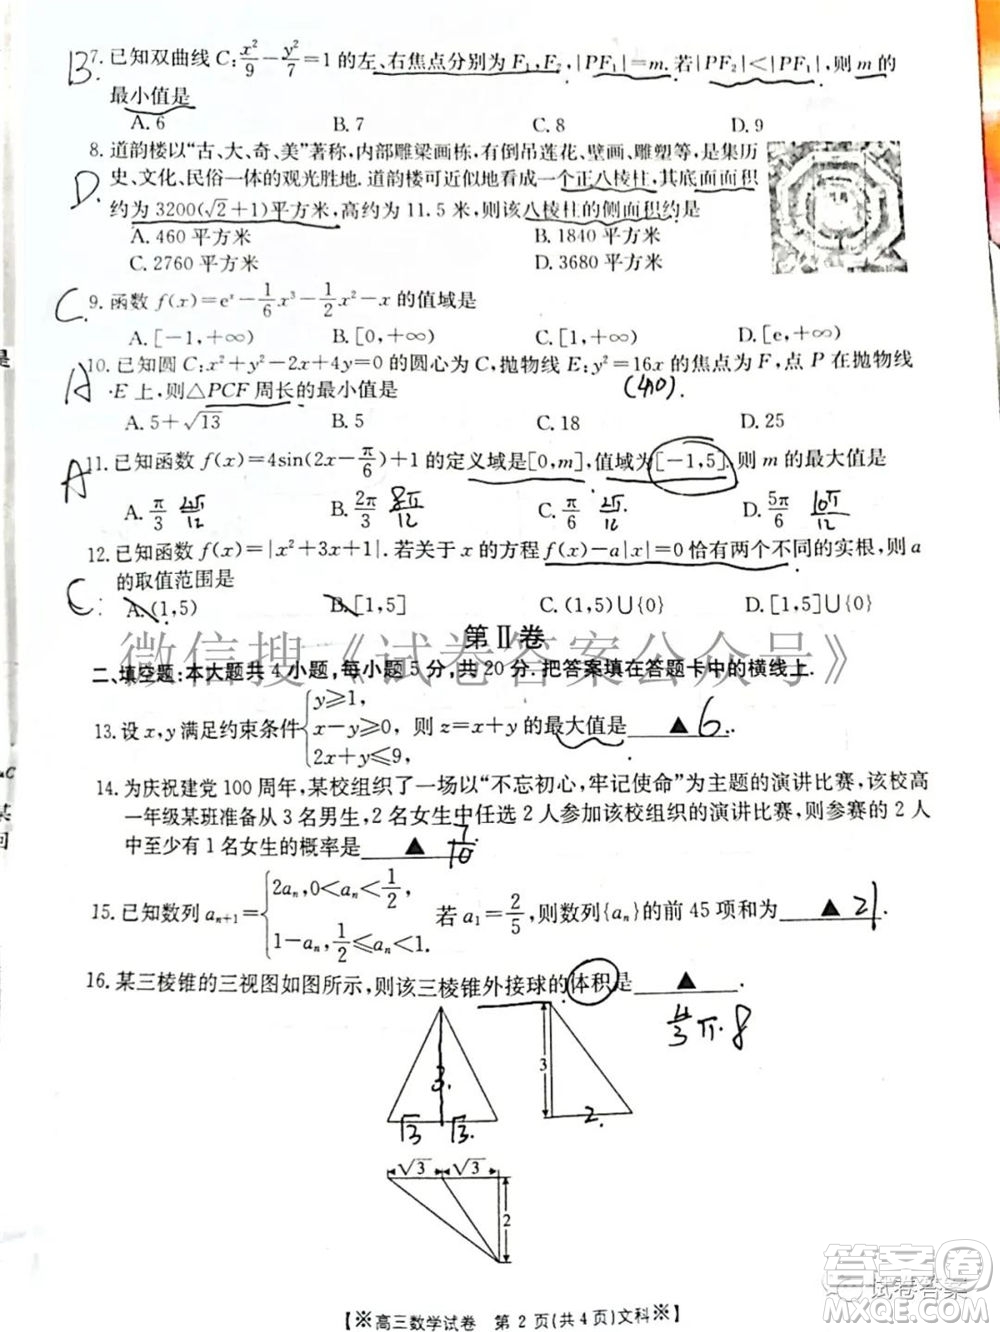 B 7. 已知双曲线 C: x²/9 − y²/7 = 1 的左、右焦点分别为 F₁, F₂, |PF₁|=m. 若 |PF₂|<|PF₁|, 则 m 的
最小值是
A. 6 B. 7 C. 8 D. 9
8. 道韵楼以“古、大、奇、美”著称, 内部雕梁画栋, 有倒吊莲花、壁画、雕塑等, 是集历
D 史、文化、民俗一体的观光胜地. 道韵楼可近似地看成一个正八棱柱, 其底面面积
约为 3200(√2+1)平方米, 高约为 11.5 米, 则该八棱柱的侧面积约是
A. 460 平方米 B. 1840 平方米
C. 2760 平方米 D. 3680 平方米
C. 9. 函数 f(x)=eˣ−1/6 x³−1/2 x²−x 的值域是
A. [−1,+∞) B. [0,+∞) C. [1,+∞) D. [e,+∞)
10. 已知圆 C: x²+y²−2x+4y=0 的圆心为 C, 抛物线 E: y²=16x 的焦点为 F, 点 P 在抛物线
A E 上, 则△PCF 周长的最小值是 (4,0)
A. 5+√13 B. 5 C. 18 D. 25
A 11. 已知函数 f(x)=4sin(2x−π/6)+1 的定义域是[0,m], 值域为[−1,5]. 则 m 的最大值是
A. π/3 4π/12 B. 2π/3 8π/12 C. π/6 2π/12 D. 5π/6 10π/12
12. 已知函数 f(x)=|x²+3x+1|. 若关于 x 的方程 f(x)−a|x|=0 恰有两个不同的实根, 则 a
C 的取值范围是
A. (1,5) B. [1,5] C. (1,5)∪{0} D. [1,5]∪{0}
第Ⅱ卷
微信搜《试卷答案公众号》
二、填空题: 本大题共 4 小题, 每小题 5 分, 共 20 分. 把答案填在答题卡中的横线上.
13. 设 x, y 满足约束条件 { y≥1, x−y≤0, 2x+y≤9, 则 z=x+y 的最大值是 ▲ 6.
14. 为庆祝建党 100 周年, 某校开展了一场以“不忘初心, 牢记使命”为主题的演讲比赛, 该校高
一年级某班准备从 3 名男生, 2 名女生中任选 2 人参加学校组织的演讲比赛, 则参赛的 2 人
中至少有 1 名女生的概率是 ▲ 7/10
15. 已知数列 aₙ₊₁= { 2aₙ, 0<aₙ<1/2, 1−aₙ, 1/2≤aₙ<1. 若 a₁=2/5, 则数列{aₙ}的前 45 项和为 ▲ 21.
16. 某三棱锥的三视图如图所示, 则该三棱锥外接球的体积是 ▲ .
4/3 π·8
3. 3 2.
√3 √3.
√3 √3
2
【※高三数学试卷 第 2 页(共 4 页)文科※】
试卷答案
答案圈
MXQE.COM